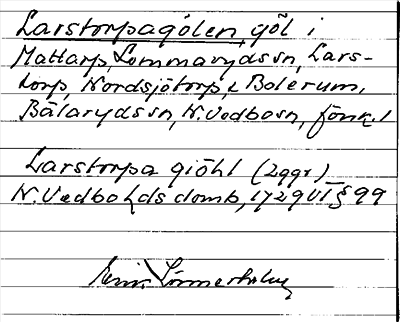 Larstorpagölen, göl i
Mattarp, Lommarydssn, Lars-
torp, Nordsjötorp, & Bolerum,
Bälarydssn, N.Vedbosn, Jönk.l
Larstorpa giöhl (2ggr)
N.Vedbo hds domb, 1729 VI § 99